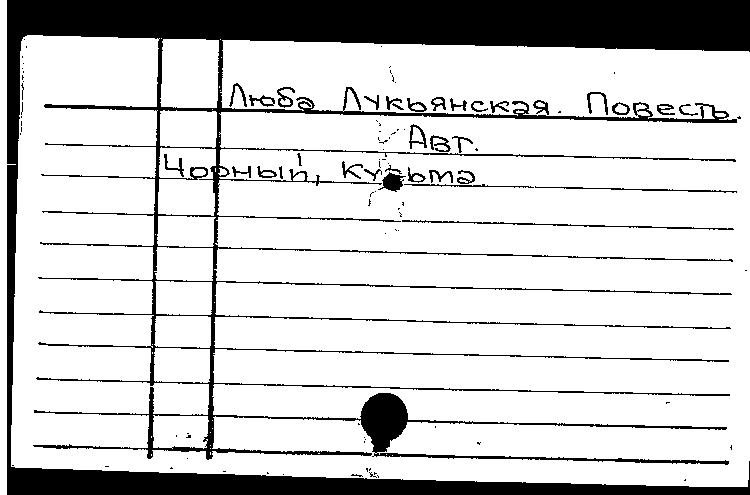 Люба Лукьянская. Повесть.
Авт.
Чорный, Кузьма.